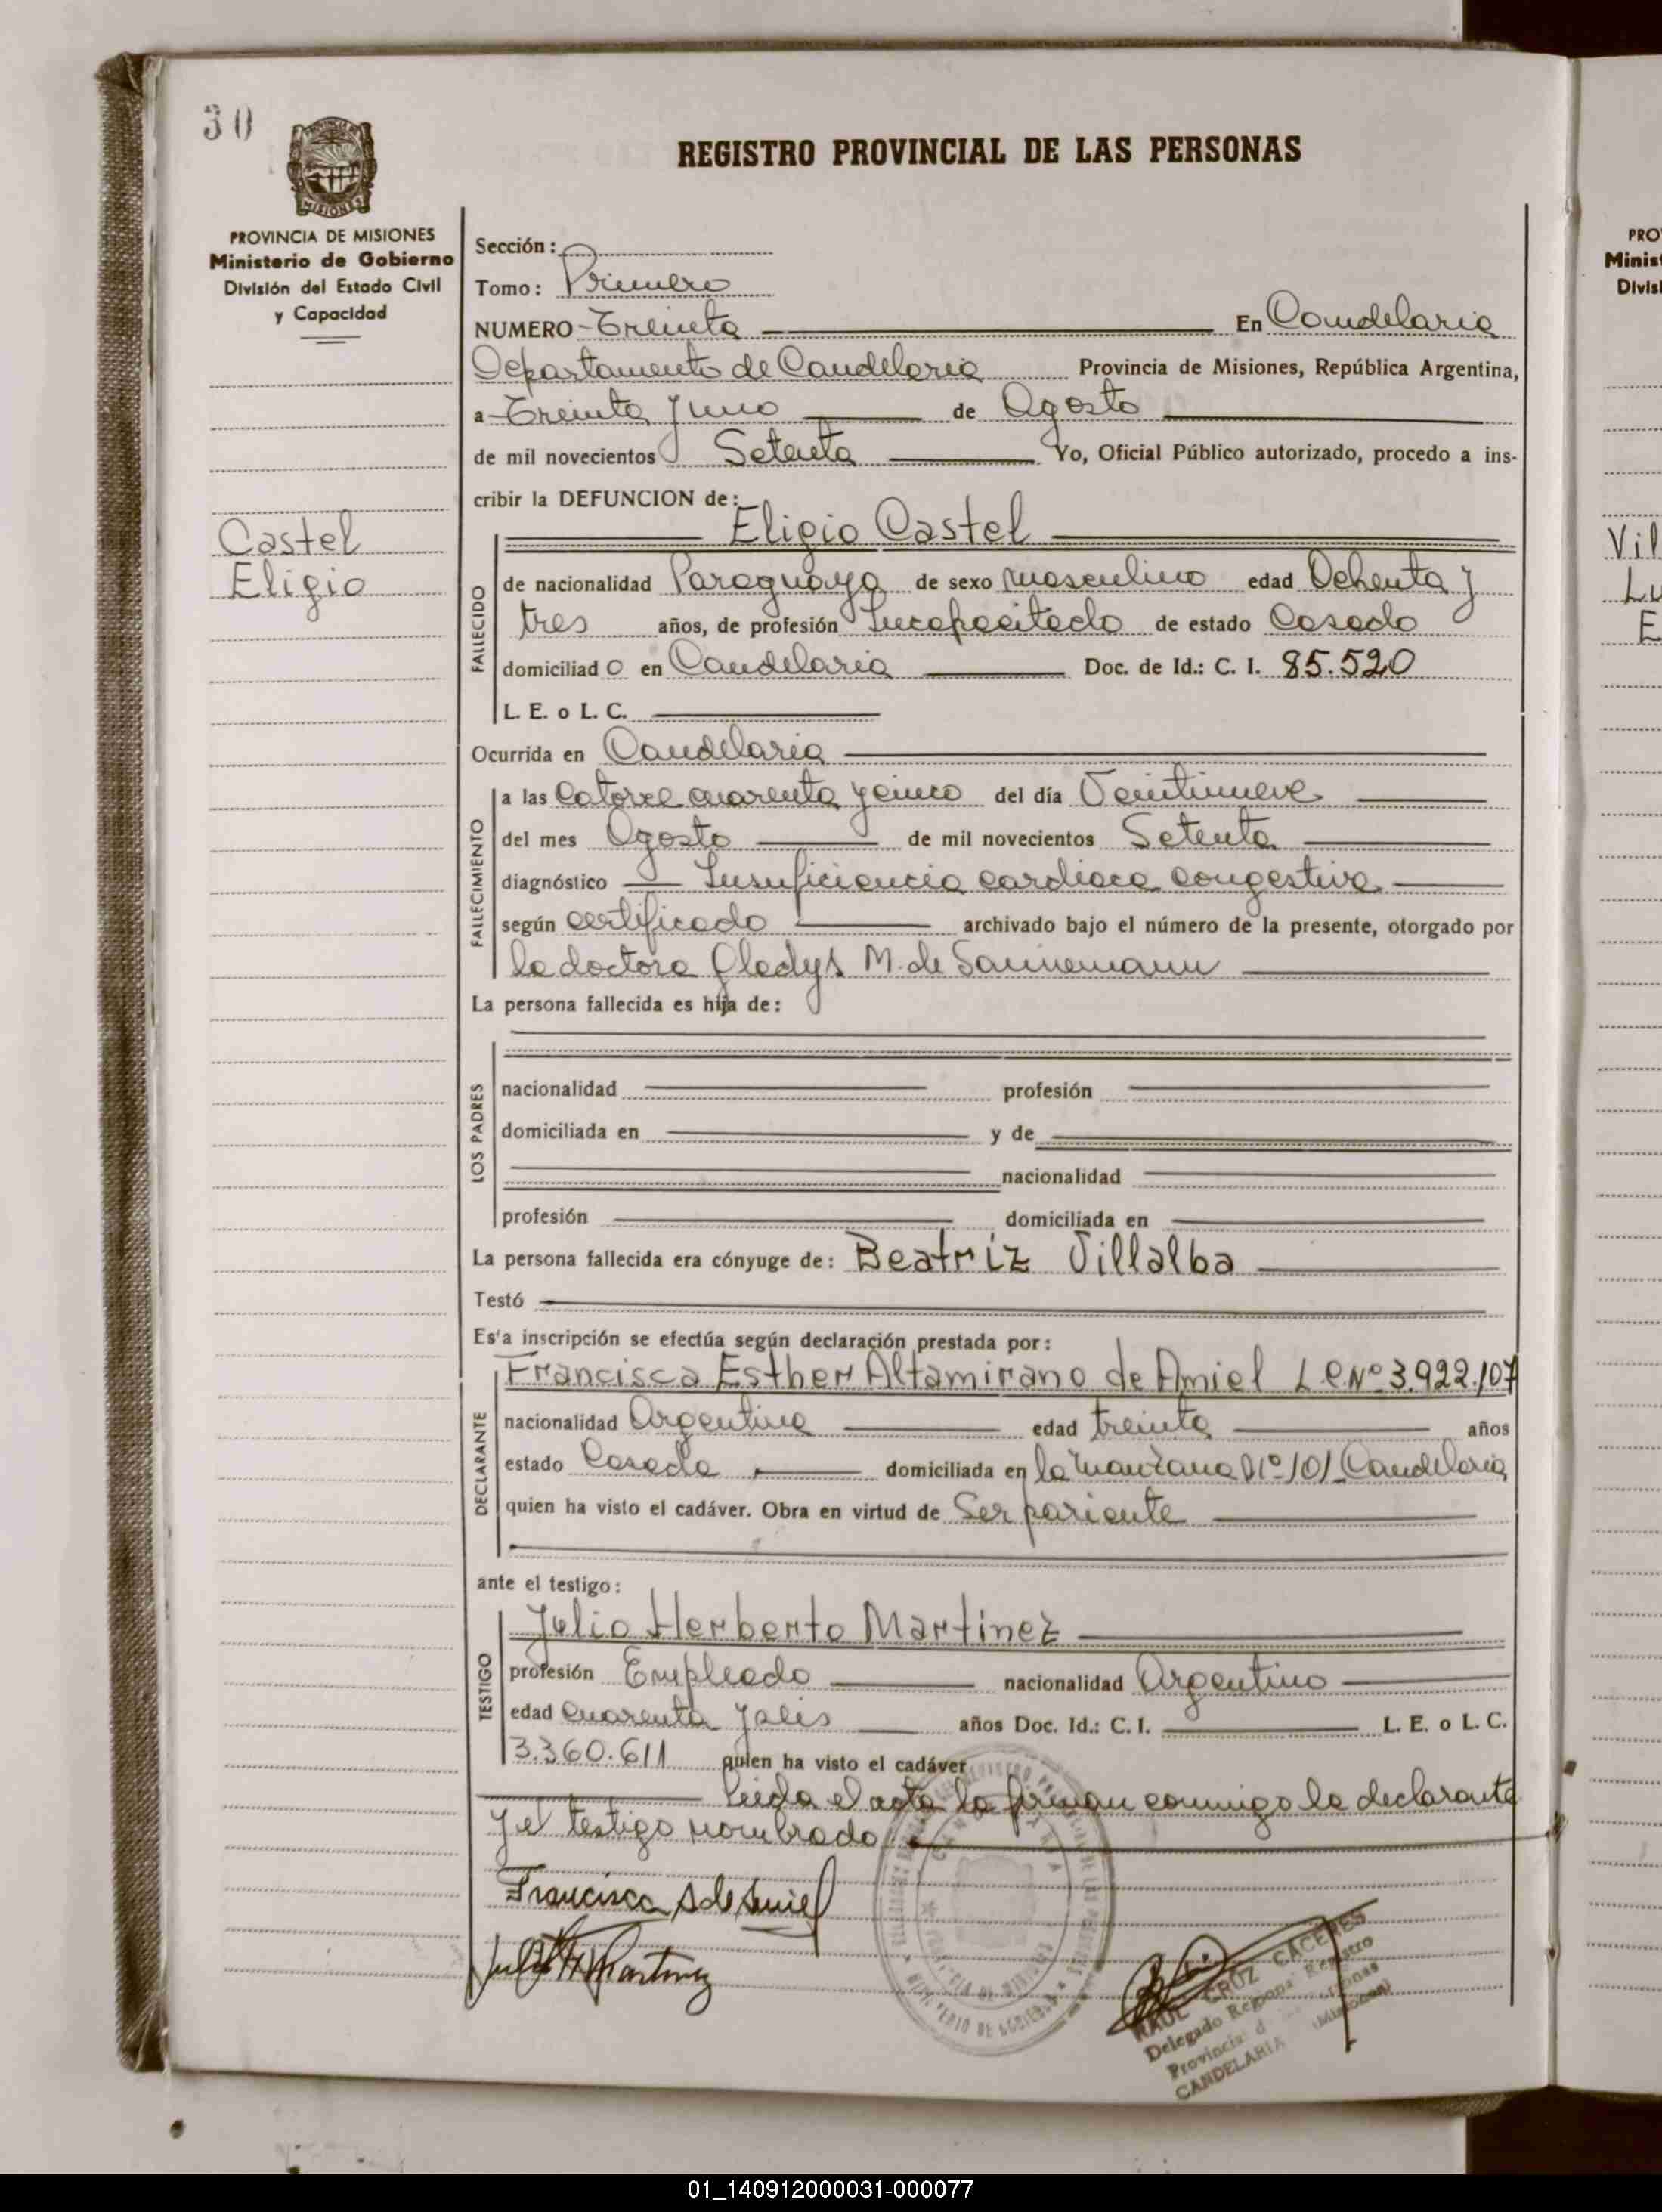 30
REGISTRO PROVINCIAL DE LAS PERSONAS
PROVINCIA DE MISIONES
Ministerio de Gobierno
División del Estado Civil
y Capacidad
Castel
Eligio
Sección:
Tomo: Primero
NUMERO Treinta En Candelaria
Departamento de Candelaria Provincia de Misiones, República Argentina,
a Treinta y uno de Agosto
de mil novecientos Setenta Yo, Oficial Público autorizado, procedo a ins-
cribir la DEFUNCION de:
Eligio Castel
FALLECIDO
de nacionalidad Paraguaya de sexo masculino edad Ochenta y
tres años, de profesión Incapacitado de estado Casado
domiciliado en Candelaria Doc. de Id.: C. I. 85.520
L. E. o L. C.
Ocurrida en Candelaria
FALLECIMIENTO
a las Catorce cuarenta y cinco del día Veintinueve
del mes Agosto de mil novecientos Setenta
diagnóstico Insuficiencia cardiaca congestiva
según certificado archivado bajo el número de la presente, otorgado por
la doctora Gladys M. de Sannemann
La persona fallecida es hija de:
LOS PADRES
nacionalidad profesión
domiciliada en y de
nacionalidad
profesión domiciliada en
La persona fallecida era cónyuge de: Beatriz Villalba
Testó
Es'a inscripción se efectúa según declaración prestada por:
DECLARANTE
Francisca Esther Altamirano de Amiel L C. Nº 3.922.107
nacionalidad Argentina edad treinta años
estado Casada domiciliada en la manzana Nº 101 Candelaria
quien ha visto el cadáver. Obra en virtud de Ser pariente
ante el testigo:
TESTIGO
Julio Herberto Martinez
profesión Empleado nacionalidad Argentino
edad Cuarenta y seis años Doc. Id.: C. I. L. E. o L. C.
3.360.611 quien ha visto el cadáver
Leida el acta la firman conmigo la declarante
y el testigo nombrado
Francisca A de Amiel
Julio H Martinez
RAUL CRUZ CACERES
Delegado Registro
CANDELARIA (Misiones)
PRO
Minist
Divisi
Vil
Lu
E
01_140912000031-000077